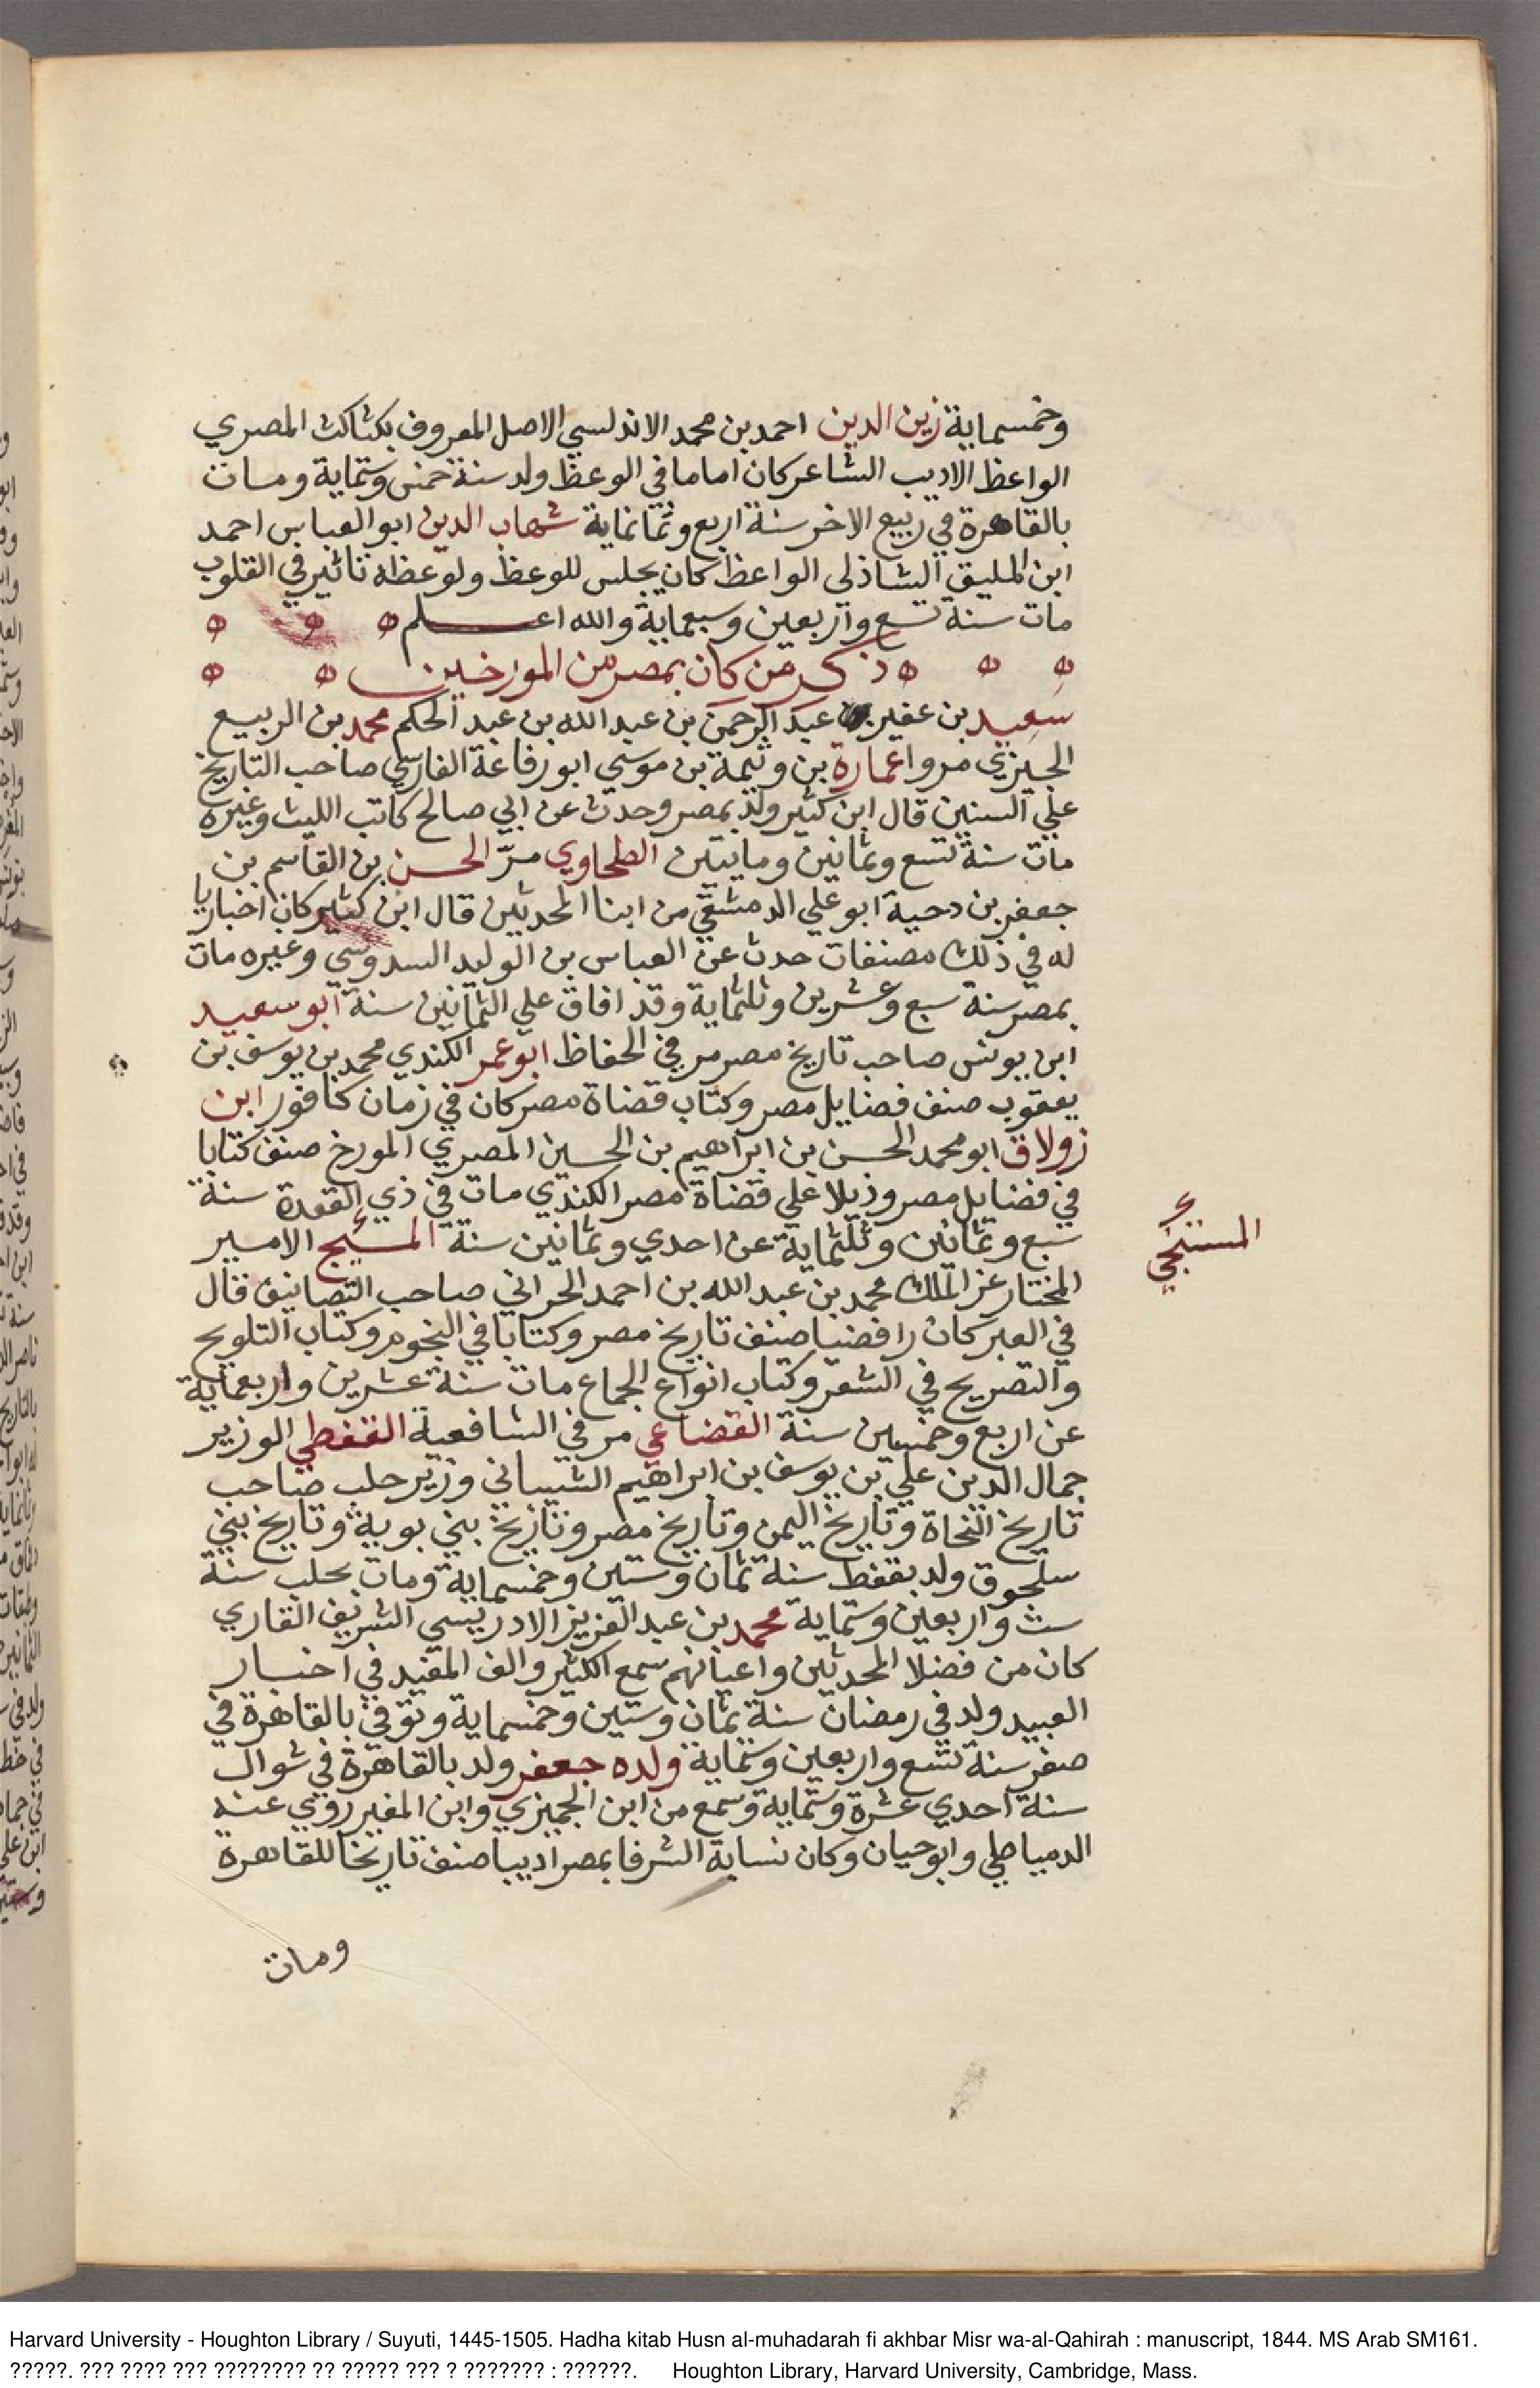 وخمسماية زين الدين احمد بن محمد الاندلسي الاصل المعروف بكتاكت المصري
الواعظ الاديب الشاعر كان اماما في الوعظ ولد سنة خمس وستماية ومات
بالقاهرة في ربيع الاخر سنة اربع وثمانماية شهاب الدين ابو العباس احمد
ابن المليق الشاذلي الواعظ كان يجلس للوعظ ولوعظه تاثير في القلوب
مات سنة تسع واربعين وسبعماية والله اعلم
ذكر من كان بمصر من المورخين
سعيد بن عفير عبد الرحمن بن عبد الله بن عبد الحكم محمد بن الربيع
الجيزي مروا عمارة بن وثيمة بن موسي ابو رفاعة الفارسي صاحب التاريخ
علي السنين قال ابن كثير ولد بمصر وحدث عن ابي صالح كاتب الليث وغيره
مات سنة تسع وثمانين ومايتين الطحاوي مرّ الحسن بن القاسم بن
جعفر بن دحية ابو علي الدمشقي من ابنا المحدثين قال ابن كثير كان اخباريا
له في ذلك مصنفات حدث عن العباس بن الوليد السدوسي وغيره مات
بمصر سنة سبع وعشرين وثلثماية وقد افاق علي الثمانين سنة ابو سعيد
ابن يونس صاحب تاريخ مصر مر في الحفاظ ابو عمر الكندي محمد بن يوسف بن
يعقوب صنف فضايل مصر وكتاب قضاة مصر كان في زمان كافور ابن
زولاق ابو محمد الحسن بن ابراهيم بن الحسين المصري المورخ صنف كتابا
في فضايل مصر وذيلا علي قضاة مصر الكندي مات في ذي القعدة سنة
سبع وثمانين وثلثماية عن احدي وثمانين سنة المسبحي الامير
المختار عز الملك محمد بن عبد الله بن احمد الحراني صاحب التصانيف قال
في العبر كان رافضيا صنف تاريخ مصر وكتابا في النجوم وكتاب التلويح
والتصريح في الشعر وكتاب انواع الجماع مات سنة عشرين واربعماية
عن اربع وخمسين سنة القضاعي مر في الشافعية القفطي الوزير
جمال الدين علي بن يوسف بن ابراهيم الشيباني وزير حلب صاحب
تاريخ النحاة وتاريخ اليمن وتاريخ مصر وتاريخ بني بوية وتاريخ بني
سلجوق ولد بقفط سنة ثمان وستين وخمسماية ومات بحلب سنة
ست واربعين وستماية محمد بن عبد العزيز الادريسي الشريف القاري
كان من فضلا المحدثين واعيانهم سمع الكثير والف المفيد في اخبار
العبيد ولد في رمضان سنة ثمان وستين وخمسماية وتوفي بالقاهرة في
صفر سنة تسع واربعين وستماية ولده جعفر ولد بالقاهرة في شوال
سنة احدي عشرة وستماية وسمع من ابن الجميزي وابن المقير روي عنه
الدمياطي وابو حيان وكان نسابة الشرفا بمصر اديبا صنف تاريخا للقاهرة
ومات
Harvard University - Houghton Library / Suyuti, 1445-1505. Hadha kitab Husn al-muhadarah fi akhbar Misr wa-al-Qahirah : manuscript, 1844. MS Arab SM161.
?????. ??? ???? ??? ???????? ?? ????? ??? ? ??????? : ??????. Houghton Library, Harvard University, Cambridge, Mass.